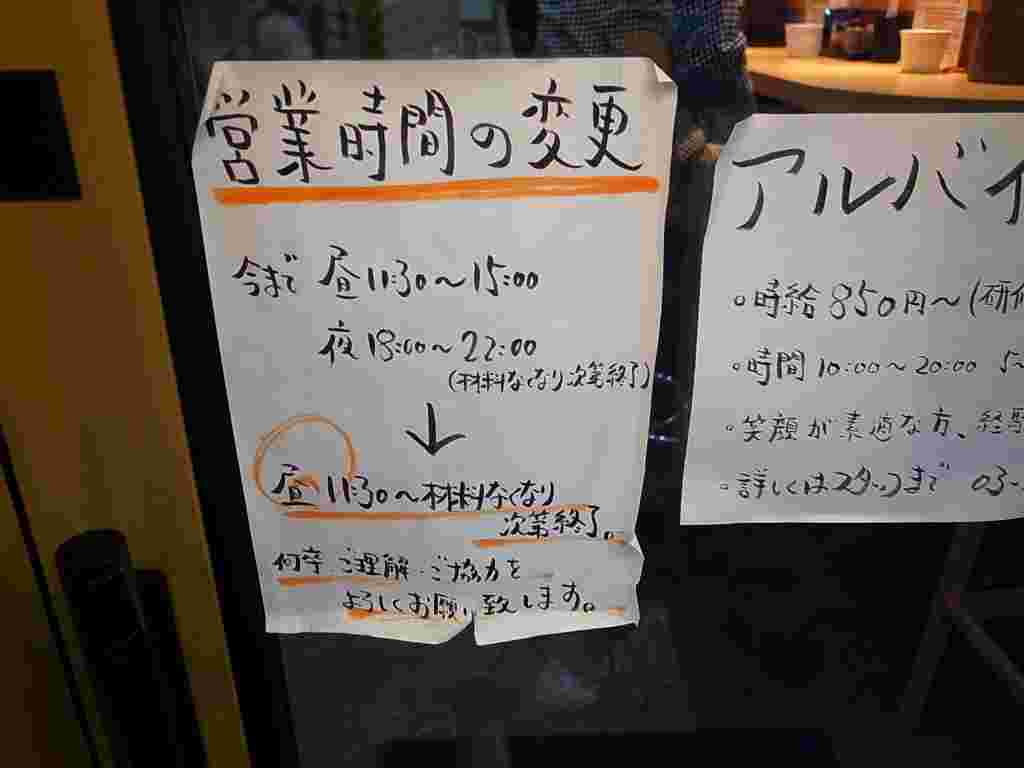 営業時間の変更
今まで 昼 11:30～15:00
夜 18:00～22:00
(材料なくなり次第終了)
↓
昼 11:30～材料なくなり
次第終了。
何卒 ご理解・ご協力を
よろしくお願い致します。
アルバイ
・時給850円～(研修
・時間 10:00～20:00 5～
・笑顔が素適な方、経験
・詳しくはスタッフまで 03-